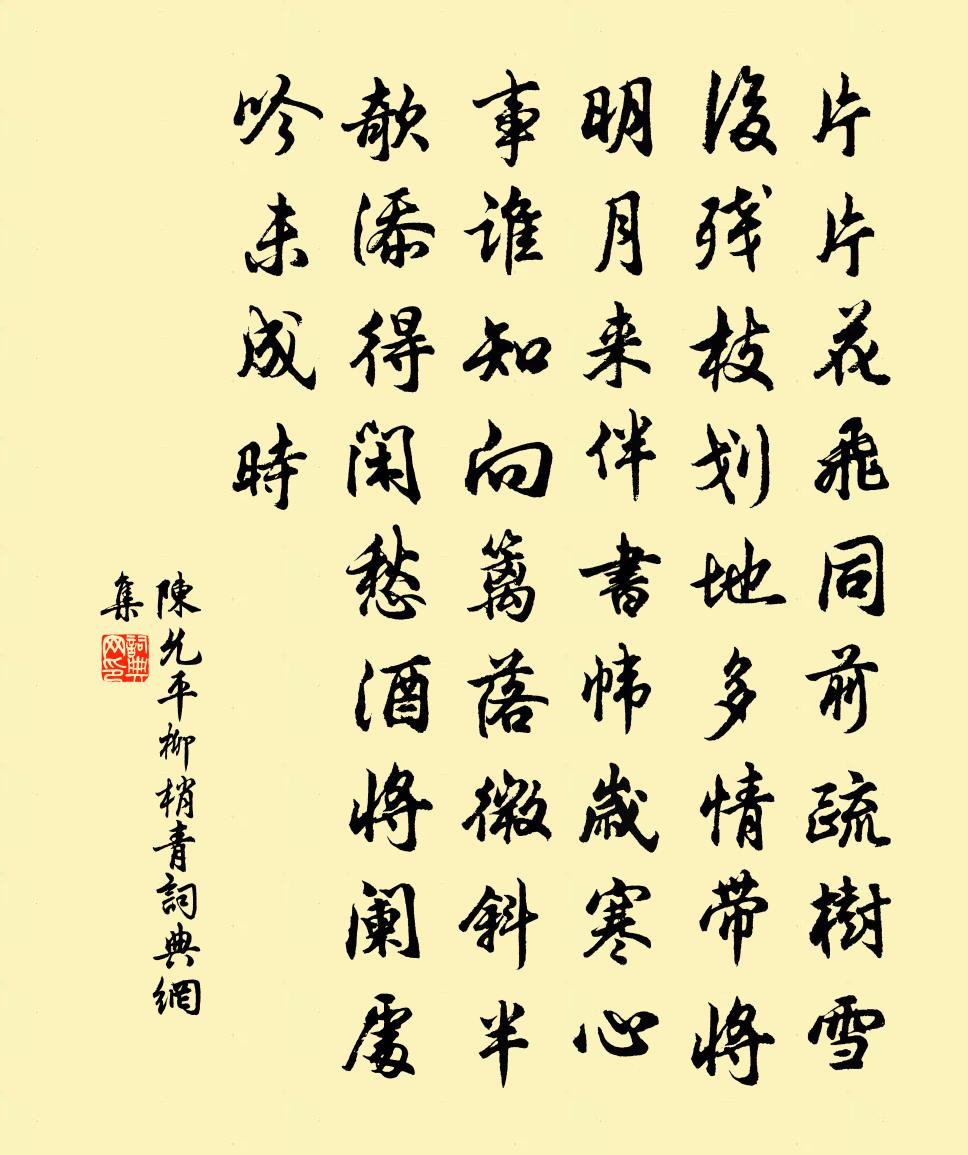 片片花飛同前疏樹雪
後残枝划地多情带將
明月来伴書帏歲寒心
事谁知向篱落微斜半
欹添得闲愁酒將阑處
吟未成時
陳允平柳梢青詞典網
集
詞典网印